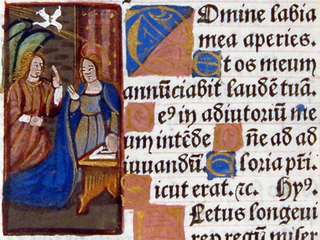 DOmine labia
mea aperies.
Et os meum
annūciabit laudē tuā.
Deꝰ in adiutoriū me
um intēde Dñe ad ad
iuuandū. Gloria pr̄i.
Sicut erat. ⁊c. Hyꝰ.
Fletus longeui
regū miser